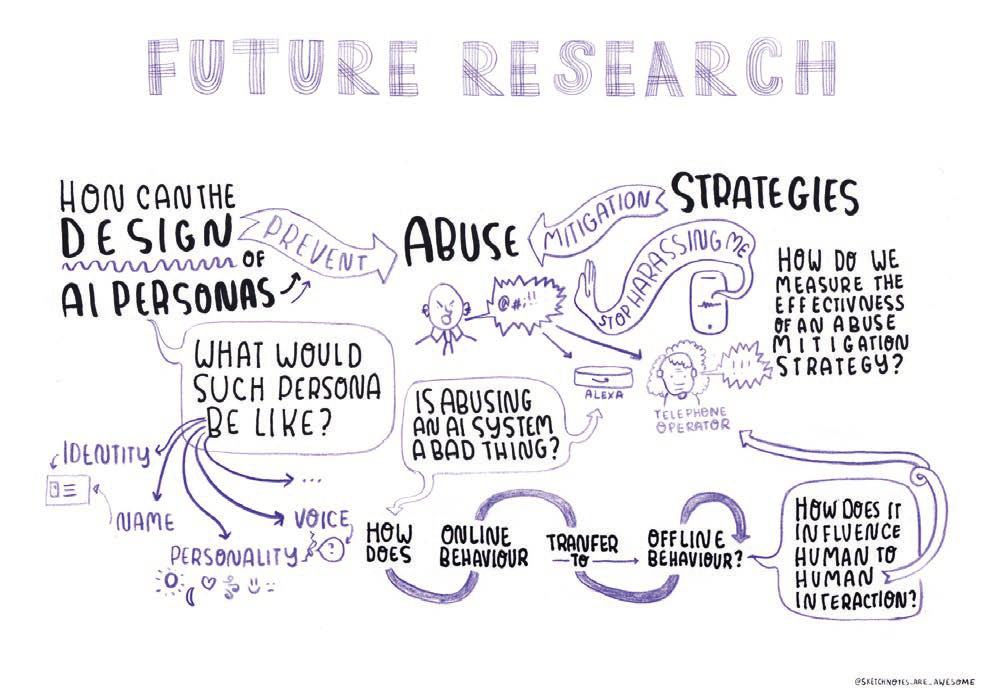 FUTURE RESEARCH
HOW CAN THE
DESIGN
OF
AI PERSONAS
PREVENT
ABUSE
MITIGATION
STRATEGIES
@#;!!
STOP HARASSING ME
HOW DO WE
MEASURE THE
EFFECTIVNESS
OF AN ABUSE
MITIGATION
STRATEGY?
ALEXA
!!!
TELEPHONE
OPERATOR
WHAT WOULD
SUCH PERSONA
BE LIKE?
IDENTITY
NAME
PERSONALITY
VOICE
...
?
IS ABUSING
AN AI SYSTEM
A BAD THING?
HOW
DOES
ONLINE
BEHAVIOUR
TRANFER
TO
OFFLINE
BEHAVIOUR?
HOW DOES IT
INFLUENCE
HUMAN TO
HUMAN
INTERACTION?
@SKETCHNOTES_ARE_AWESOME